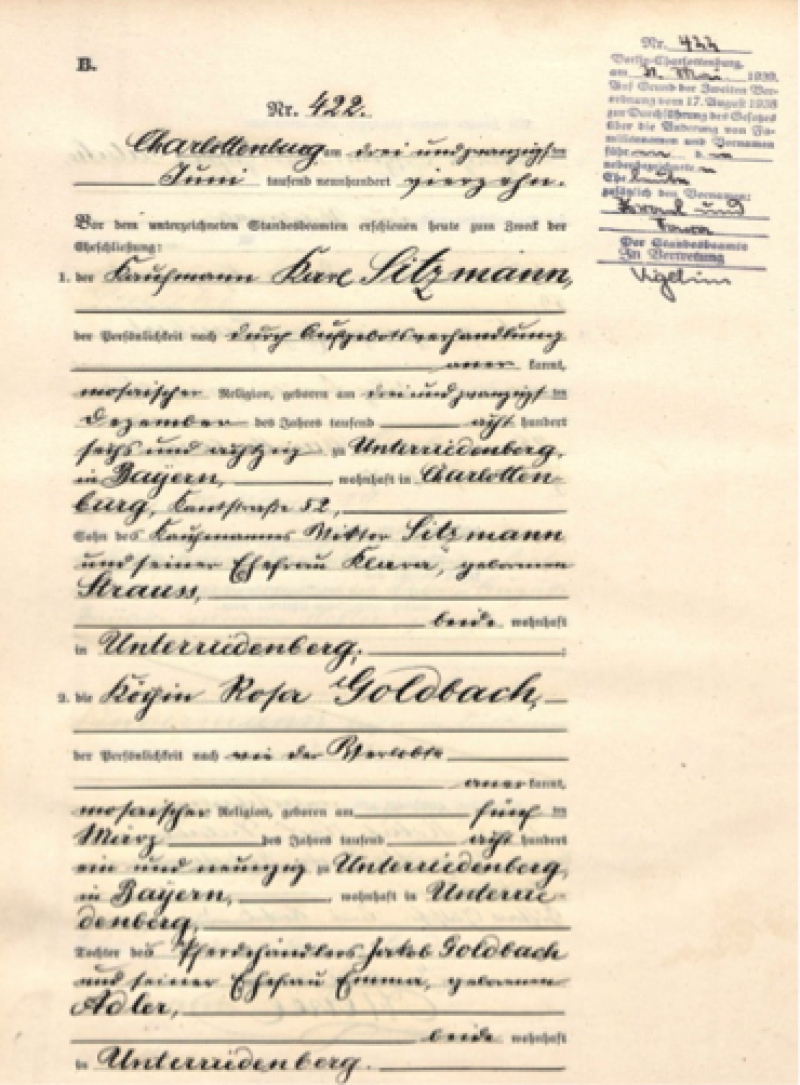 B.
Nr. 422.
Charlottenburg am drei und zwanzigsten
Juni tausend neunhundert vierzehn.
Vor dem unterzeichneten Standesbeamten erschienen heute zum Zweck der
Eheschließung:
1. der Kaufmann Karl Sitzmann,
der Persönlichkeit nach durch Aufgebotsverhandlung
aner kannt,
mosaischer Religion, geboren am drei und zwanzigsten
Dezember des Jahres tausend acht hundert
sechs und achtzig zu Unterriedenberg,
in Bayern, wohnhaft in Charlotten-
burg, Kantstraße 52,
Sohn des Kaufmanns Viktor Sitzmann
und seiner Ehefrau Klara, geborenen
Strauss,
beide wohnhaft
in Unterriedenberg;
2. die Köchin Rosa Goldbach,
der Persönlichkeit nach wie der Verlobte
aner kannt,
mosaischer Religion, geboren am fünften
März des Jahres tausend acht hundert
ein und neunzig zu Unterriedenberg,
in Bayern, wohnhaft in Unterrie-
denberg,
Tochter des Pferdehändlers Jakob Goldbach
und seiner Ehefrau Emma, geborenen
Adler,
beide wohnhaft
in Unterriedenberg.
Nr. 422
Berlin-Charlottenburg,
am Mai 1939.
Auf Grund der Zweiten Ver-
ordnung vom 17. August 1938
zur Durchführung des Gesetzes
über die Änderung von Fa-
miliennamen und Vornamen
nebenbezeichneten
Eheleute
zusätzlich den Vornamen:
Israel und
Sara
Der Standesbeamte
In Vertretung